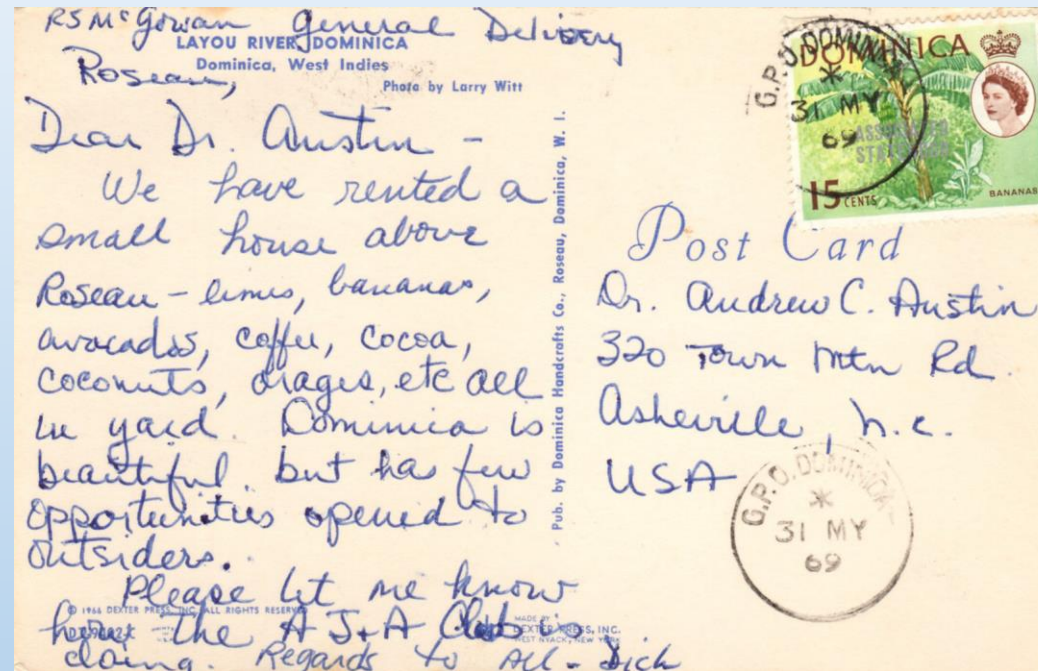 RS McGowan General Delivery
LAYOU RIVER, DOMINICA
Dominica, West Indies
Roseau,
Photo by Larry Witt
Dear Dr. Austin -
We have rented a
small house above
Roseau - limes, bananas,
avacados, coffee, cocoa,
coconuts, orages, etc all
in yard. Dominica is
beautiful. but ha few
opportunities opened to
outsiders.
Please let me know
how the A J + A Club is
doing. Regards to All - Dick
© 1966 DEXTER PRESS, INC. ALL RIGHTS RESERVED
MADE BY
DEXTER PRESS, INC.
WEST NYACK, NEW YORK
Pub. by Dominica Handcrafts Co., Roseau, Dominica, W. I.
DOMINICA
ASSOCIATED
STATEHOOD
15 CENTS
BANANAS
G.P.O. DOMINICA
31 MY
69
Post Card
Dr. Andrew C. Austin
320 Town Mtn Rd.
Asheville, N.C.
USA
G.P.O. DOMINICA
31 MY
69